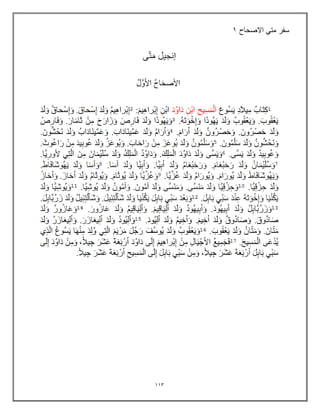 سفر متي الاصحاح ١
إنجيل متَّى
الأصحَاحُ الأَوَّلُ
١كِتَابُ مِيلاَدِ يَسُوعَ الْمَسِيحِ ابْنِ دَاوُدَ ابْنِ إِبْراهِيمَ: ٢إِبْراهِيمُ وَلَدَ إِسْحاقَ. وَإِسْحاقُ وَلَدَ
يَعْقُوبَ. وَيَعْقُوبُ وَلَدَ يَهُوذَا وَإِخْوَتَهُ. ٣وَيَهُوذَا وَلَدَ فَارِصَ وَزَارَحَ مِنْ ثَامَارَ. وَفَارِصُ
وَلَدَ حَصْرُونَ. وَحَصْرُونُ وَلَدَ أَرَامَ. ٤وَأَرَامُ وَلَدَ عَمِّينَادَابَ. وَعَمِّينَادَابُ وَلَدَ نَحْشُونَ.
وَنَحْشُونُ وَلَدَ سَلْمُونَ. ٥وَسَلْمُونُ وَلَدَ بُوعَزَ مِنْ رَاحَابَ. وَبُوعَزُ وَلَدَ عُوبِيدَ مِنْ رَاعُوثَ.
وَعُوبِيدُ وَلَدَ يَسَّى. ٦وَيَسَّى وَلَدَ دَاوُدَ الْمَلِكَ. وَدَاوُدُ الْمَلِكُ وَلَدَ سُلَيْمَانَ مِنَ الَّتِي لأُورِيَّا.
٧وَسُلَيْمَانُ وَلَدَ رَحَبْعَامَ. وَرَحَبْعَامُ وَلَدَ أَبِيَّا. وَأَبِيَّا وَلَدَ آسَا. ٨وَآسَا وَلَدَ يَهُوشَافَاطَ.
وَيَهُوشَافَاطُ وَلَدَ يُورَامَ. وَيُورَامُ وَلَدَ عُزِّيَّا. ٩وَعُزِّيَّا وَلَدَ يُوثَامَ. وَيُوثَامُ وَلَدَ أَحَازَ. وَأَحَازُ
وَلَدَ حِزْقِيَّا. ١٠وَحِزْقِيَّا وَلَدَ مَنَسَّى. وَمَنَسَّى وَلَدَ آمُونَ. وَآمُونُ وَلَدَ يُوشِيَّا. ١١وَيُوشِيَّا وَلَدَ
يَكُنْيَا وَإِخْوَتَهُ عِنْدَ سَبْيِ بَابِلَ. ١٢وَبَعْدَ سَبْيِ بَابِلَ يَكُنْيَا وَلَدَ شَأَلْتِئِيلَ. وَشَأَلْتِئِيلُ وَلَدَ زَرُبَّابِلَ.
١٣وَزَرُبَّابِلُ وَلَدَ أَبِيهُودَ. وَأَبِيهُودُ وَلَدَ أَلِيَاقِيمَ. وَأَلِيَاقِيمُ وَلَدَ عَازُورَ. ١٤وَعَازُورُ وَلَدَ
صَادُوقَ. وَصَادُوقُ وَلَدَ أَخِيمَ. وَأَخِيمُ وَلَدَ أَلِيُودَ. ١٥وَأَلِيُودُ وَلَدَ أَلِيعَازَرَ. وَأَلِيعَازَرُ وَلَدَ
مَتَّانَ. وَمَتَّانُ وَلَدَ يَعْقُوبَ. ١٦وَيَعْقُوبُ وَلَدَ يُوسُفَ رَجُلَ مَرْيَمَ الَّتِي وُلِدَ مِنْهَا يَسُوعُ الَّذِي
يُدْعَى الْمَسِيحَ. ١٧فَجَمِيعُ الأَجْيَالِ مِنْ إِبْراهِيمَ إِلَى دَاوُدَ أَرْبَعَةَ عَشَرَ جِيلاً، وَمِنْ دَاوُدَ إِلَى
سَبْيِ بَابِلَ أَرْبَعَةَ عَشَرَ جِيلاً، وَمِنْ سَبْيِ بَابِلَ إِلَى الْمَسِيحِ أَرْبَعَةَ عَشَرَ جِيلاً.
١١٣